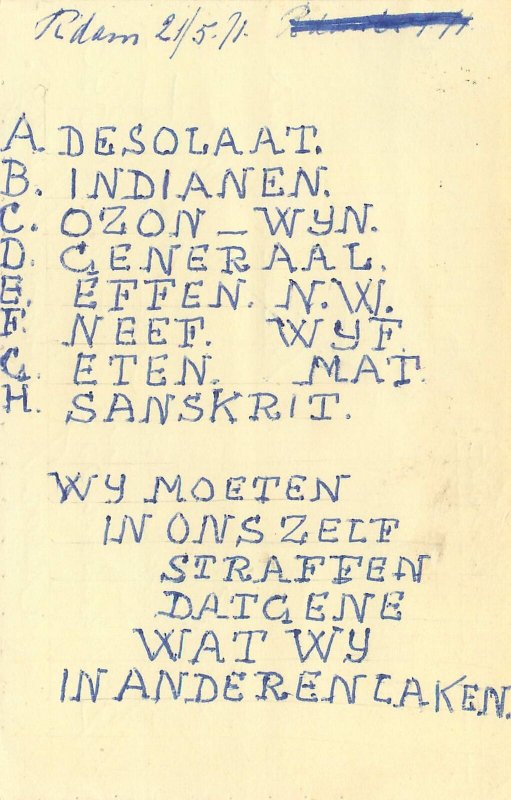 Rdam 21/5.71.
A. DESOLAAT.
B. INDIANEN.
C. OZON — WYN.
D. GENERAAL.
E. EFFEN. N.W.
F. NEEF. WYF.
G. ETEN. MAT.
H. SANSKRIT.
WY MOETEN
IN ONS ZELF
STRAFFEN
DATGENE
WAT WY
IN ANDEREN LAKEN.